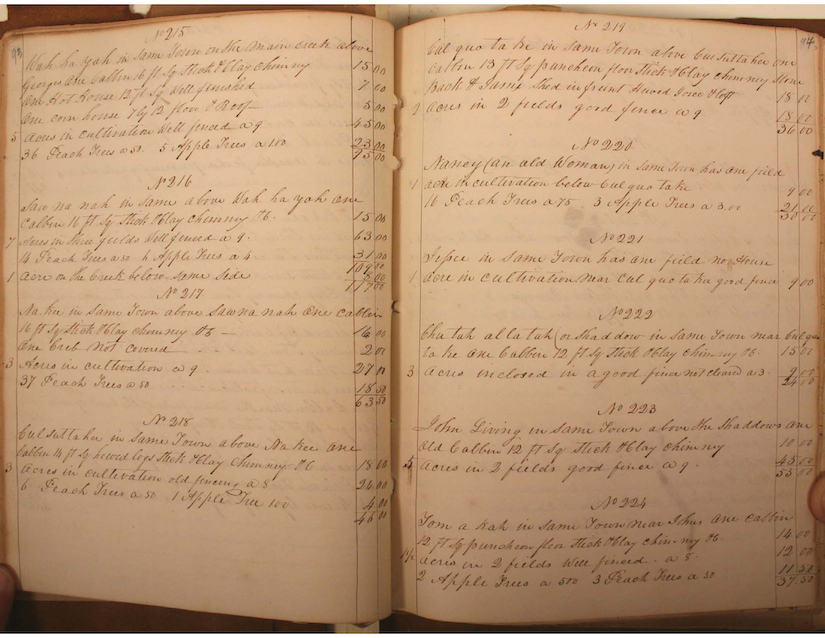 93
No 215
Wah ha yah in same Town on the main Creek above
Georges one Cabbin 16 ft Sq Stick & Clay Chimney 15 00
One Hot House 12 ft Sq Well finished 7 00
One corn house 7 by 12 floor & Roof 5 00
5 Acres in cultivation Well fenced a 9 45 00
36 Peach Trees a 50 5 Apple Trees a 100 23 00
95 00
No 216
Saw na nah in same above Wah ha yah one
Cabbin 16 ft Sq Stick & Clay chimney &c 15 00
7 Acres in three fields Well fenced a 9 63 00
14 Peach Trees a 50 6 Apple Trees a 4 31 00
109 00
1 Acre on the Creek below same side 8 00
117 00
No 217
Na kee in same Town above Sawna nah one Cabbin
16 ft Sq Stick & Clay chimney &c 16 00
One Crib not covered 2 00
3 Acres in cultivation a 9 27 00
37 Peach Trees a 50 18 50
63 50
No 218
Cul Suttahee in same Town above Na kee one
Cabbin 16 ft Sq hewed logs Stick & Clay Chimney &c 18 00
3 Acres in cultivation old fencing a 8 24 00
6 Peach Trees a 50 1 Apple Tree 100 4 00
46 00
94
No 219
Cul quo ta ke in same Town above Cul Suttahee one
Cabbin 13 ft Sq puncheon floor Stick & Clay chimney Stone
Back & Shed in front Hewed Joice & loft 18 00
2 Acres in 2 fields good fence a 9 18 00
36 00
No 220
Nancy (an old Woman) in same Town has one field
1 Acre in cultivation below Cul quo take 9 00
16 Peach Trees a 75 3 Apple Trees a 3.00 21 00
30 00
No 221
Jesse in same Town has one field no House
1 Acre in cultivation near Cul quo ta kee good fence 9 00
No 222
Chu tah alla tah (or Shaddow in same Town near Cul quo
ta ke one Cabbin 12 ft Sq Stick & Clay chimney &c 15 00
3 Acres inclosed in a good fence not cleared a 3 9 00
24 00
No 223
John Living in same Town above the Shaddows one
Old Cabbin 12 ft Sq Stick & Clay Chimney 10 00
5 Acres in 2 fields good fence a 9 45 00
55 00
No 224
Tom a kah in same Town near Johns one Cabbin
12 ft Sq puncheon floor Stick & Clay chimney &c 14 00
1½ Acres in 2 fields Well fenced a 8 12 00
2 Apple Trees a 500 3 Peach Trees a 50 11 50
37 50